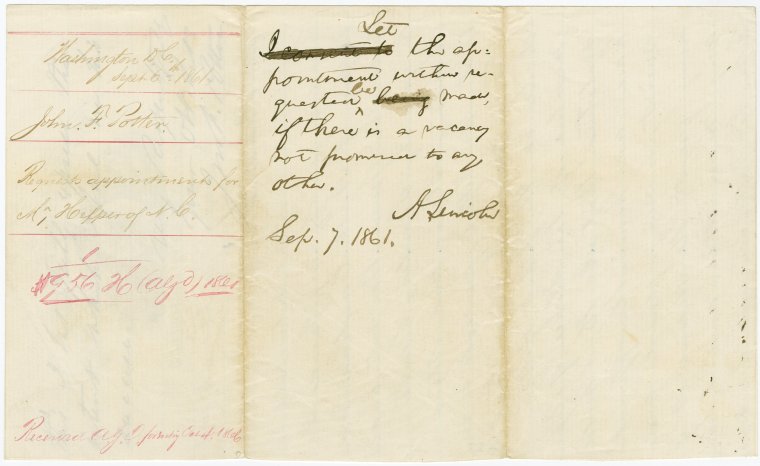 Washington D.C.
Sept 6th 1861
John. F. Potter.
Requests appointment for
Mr, Helper of N. C.
956 H (Ag'd) 1861
Received A.G.
Let
I commit to the ap=
pointment within re-
quested be being made,
if there ^ is a vacancy
not promised to any
other.
A Lincoln
Sep. 7. 1861.